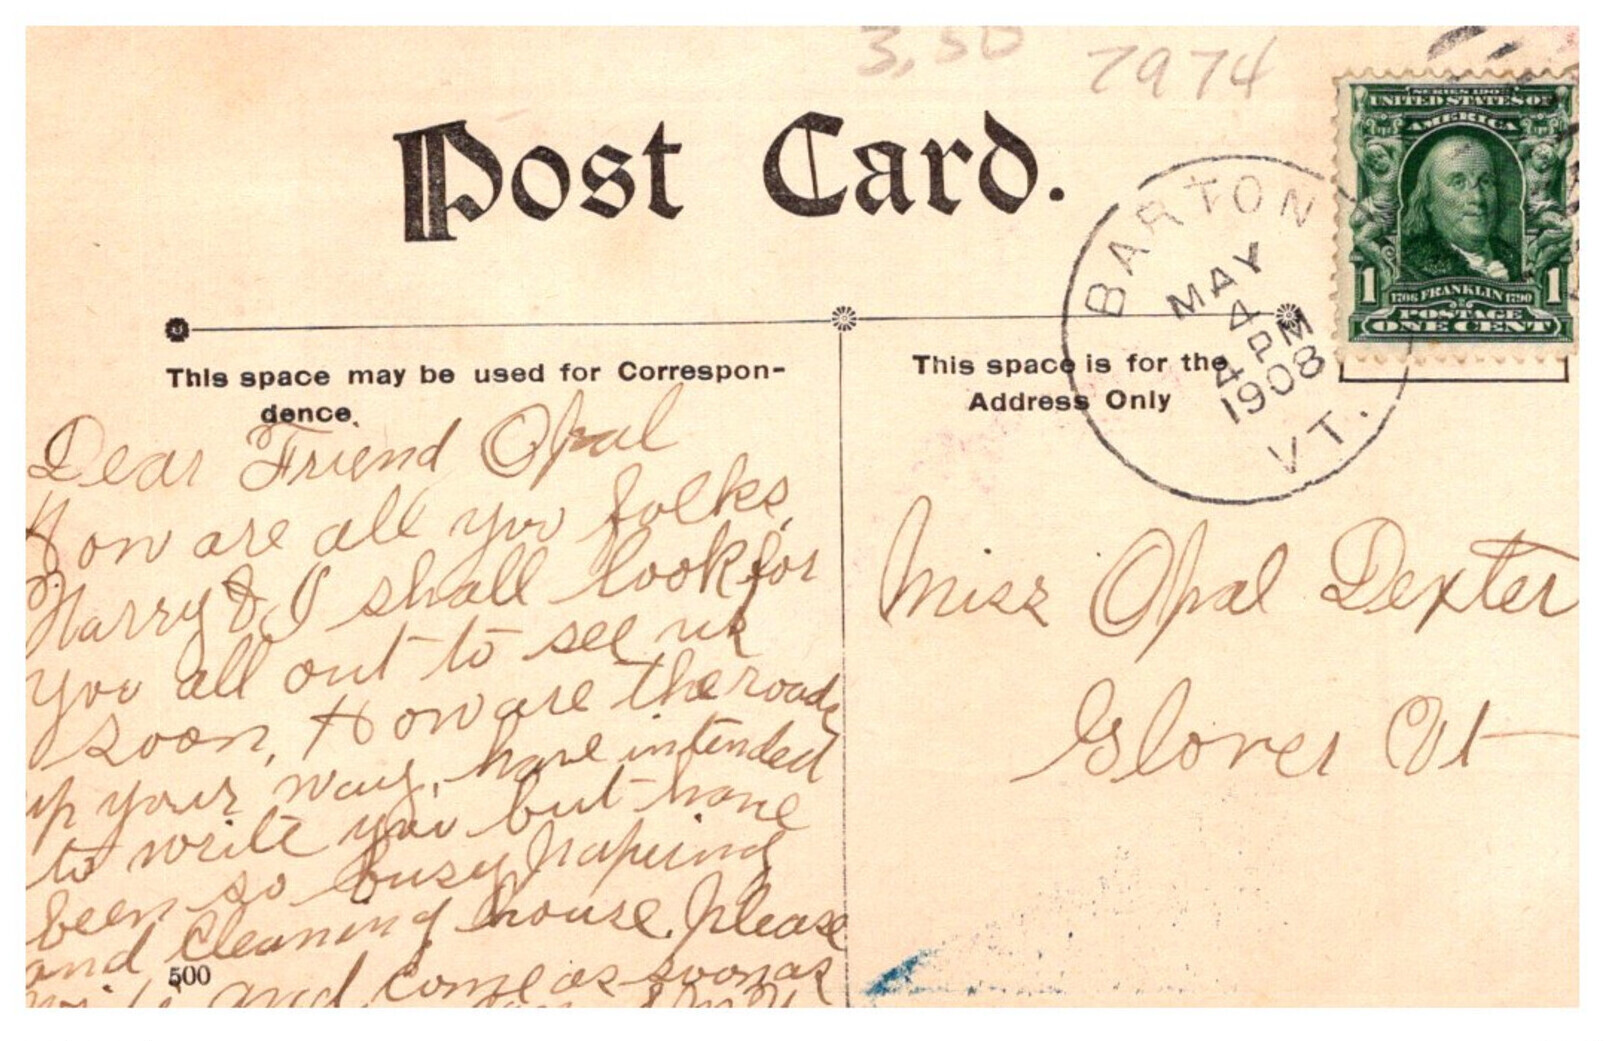 3,50 7974
Post Card.
SERIES 1902
UNITED STATES OF
AMERICA
1 1
1706 FRANKLIN 1790
POSTAGE
ONE CENT
BARTON
MAY
4
4 PM
1908
VT.
This space may be used for Correspon-
dence.
This space is for the
Address Only
Dear Friend Opal
How are all you folks,
Harry & I shall look for
you all out to see us
soon, How are the roads
up your way, have intended
to write you but have
been so busy papering
and cleaning house. please
and come as soon as
500
Miss Opal Dexter
Glover Vt